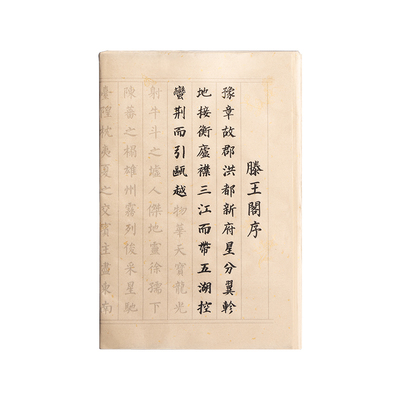 滕王閣序
豫章故郡洪都新府星分翼軫
地接衡廬襟三江而帶五湖控
蠻荊而引甌越物華天寶龍光
射牛斗之墟人傑地靈徐孺下
陳蕃之榻雄州霧列俊采星馳
臺隍枕夷夏之交賓主盡東南